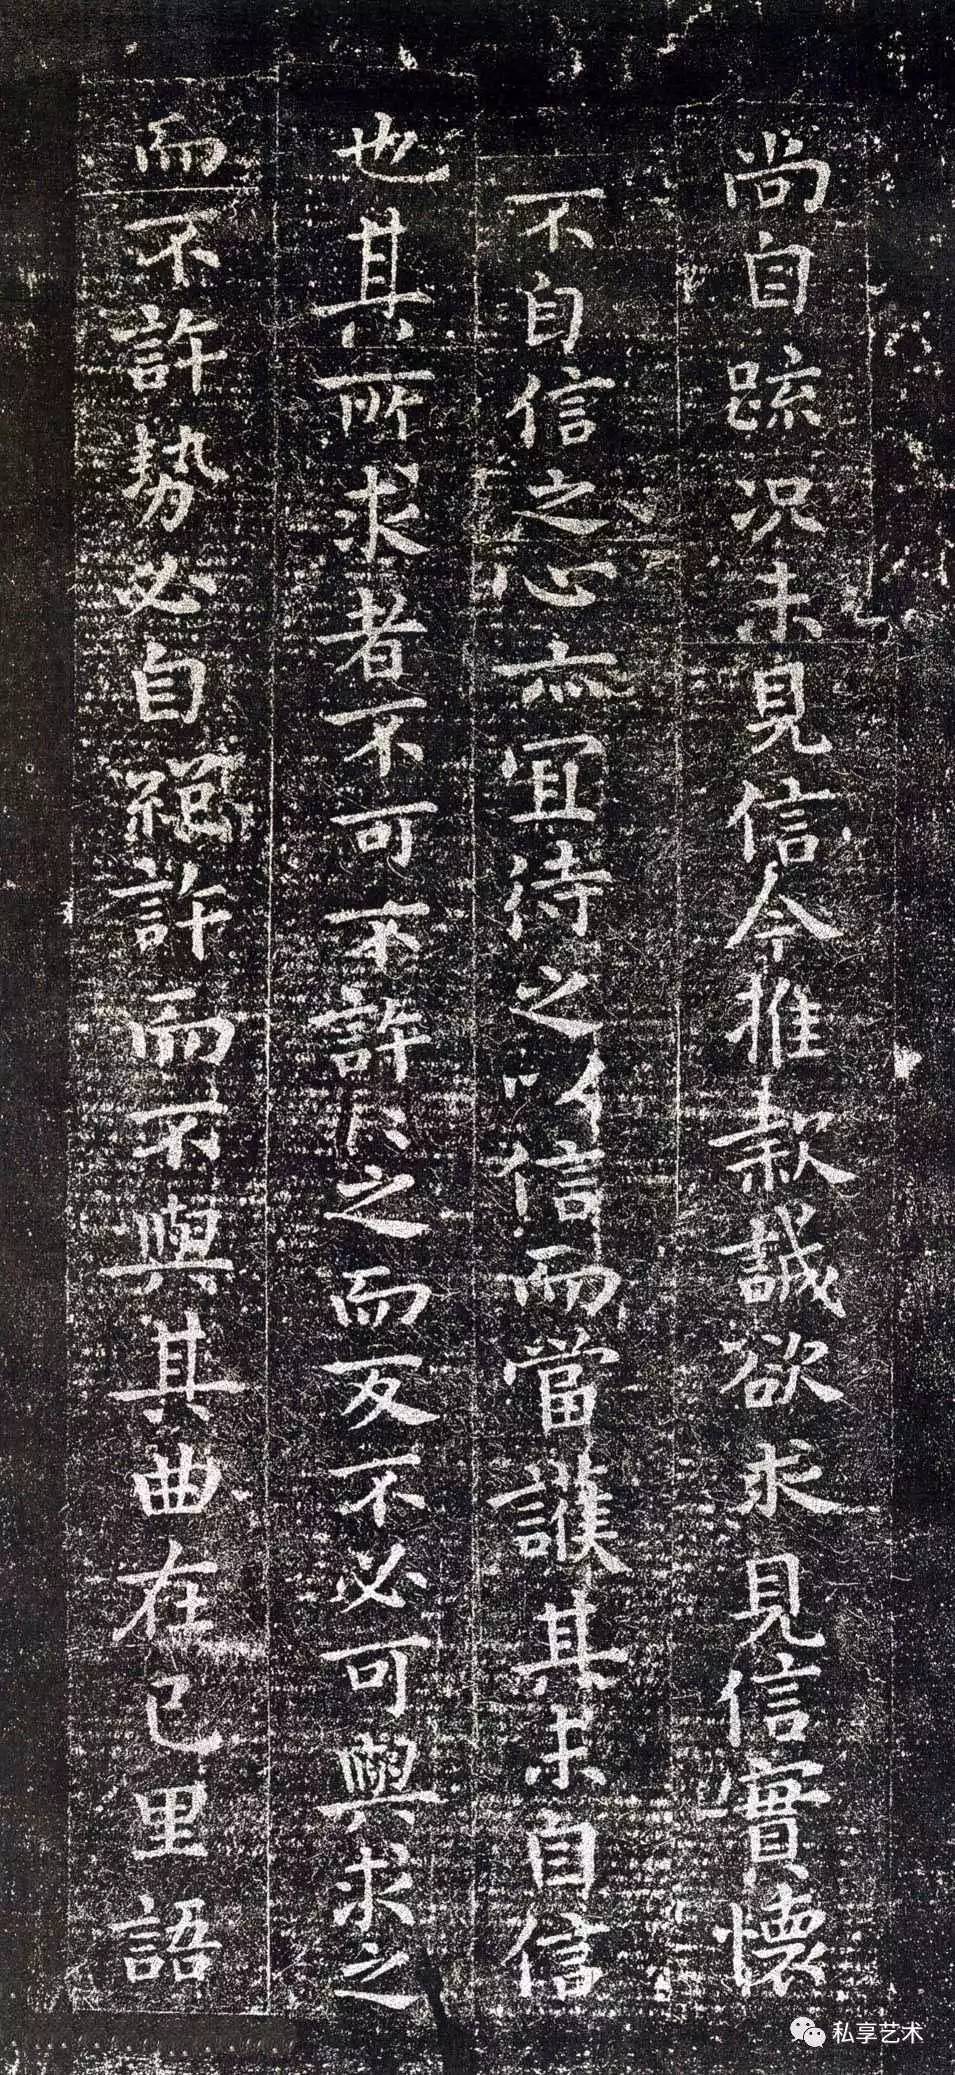 尚自疏况未見信今推款誠欲求見信實懷
不自信之心亦宜待之以信而當護其未自信
也其所求者不可不許之而反不必可與求之
而不許勢必自絕許而不與其曲在己里語
私享艺术